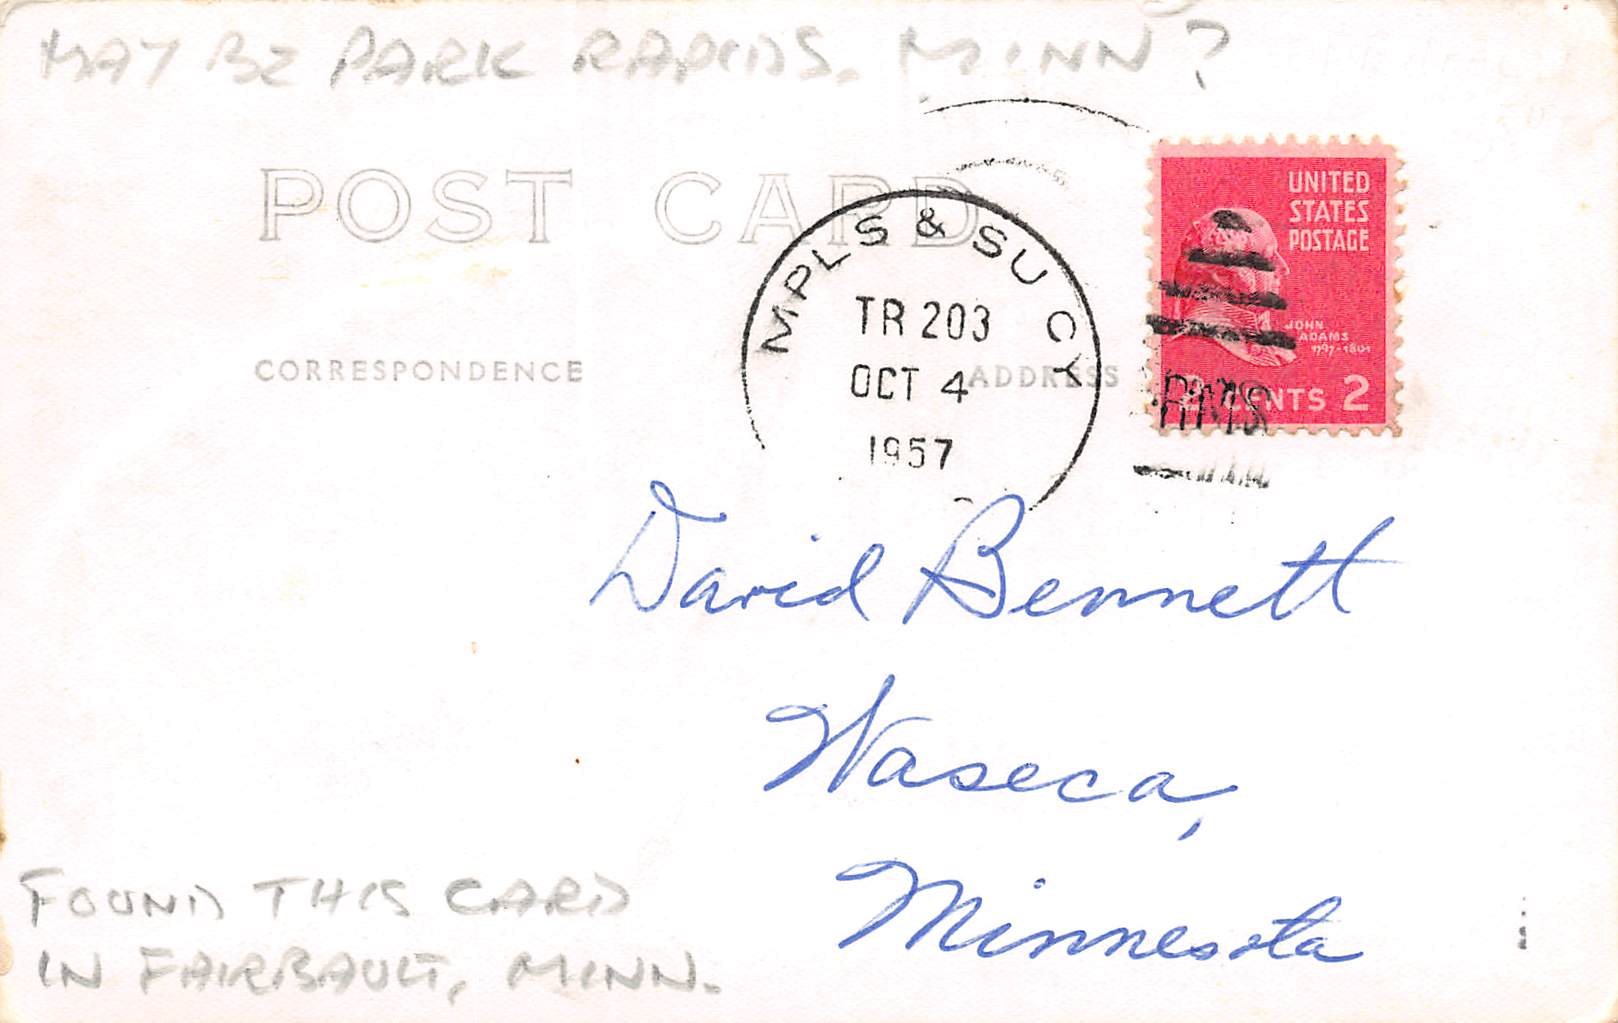 MAY BE PARK RAPIDS. MINN?
POST CARD
CORRESPONDENCE
ADDRESS
MPLS & SU CY
TR 203
OCT 4
1957
UNITED
STATES
POSTAGE
JOHN
ADAMS
1797-1801
2 CENTS 2
RMS
David Bennett
Waseca,
Minnesota
FOUND THIS CARD
IN FAIRBAULT, MINN.